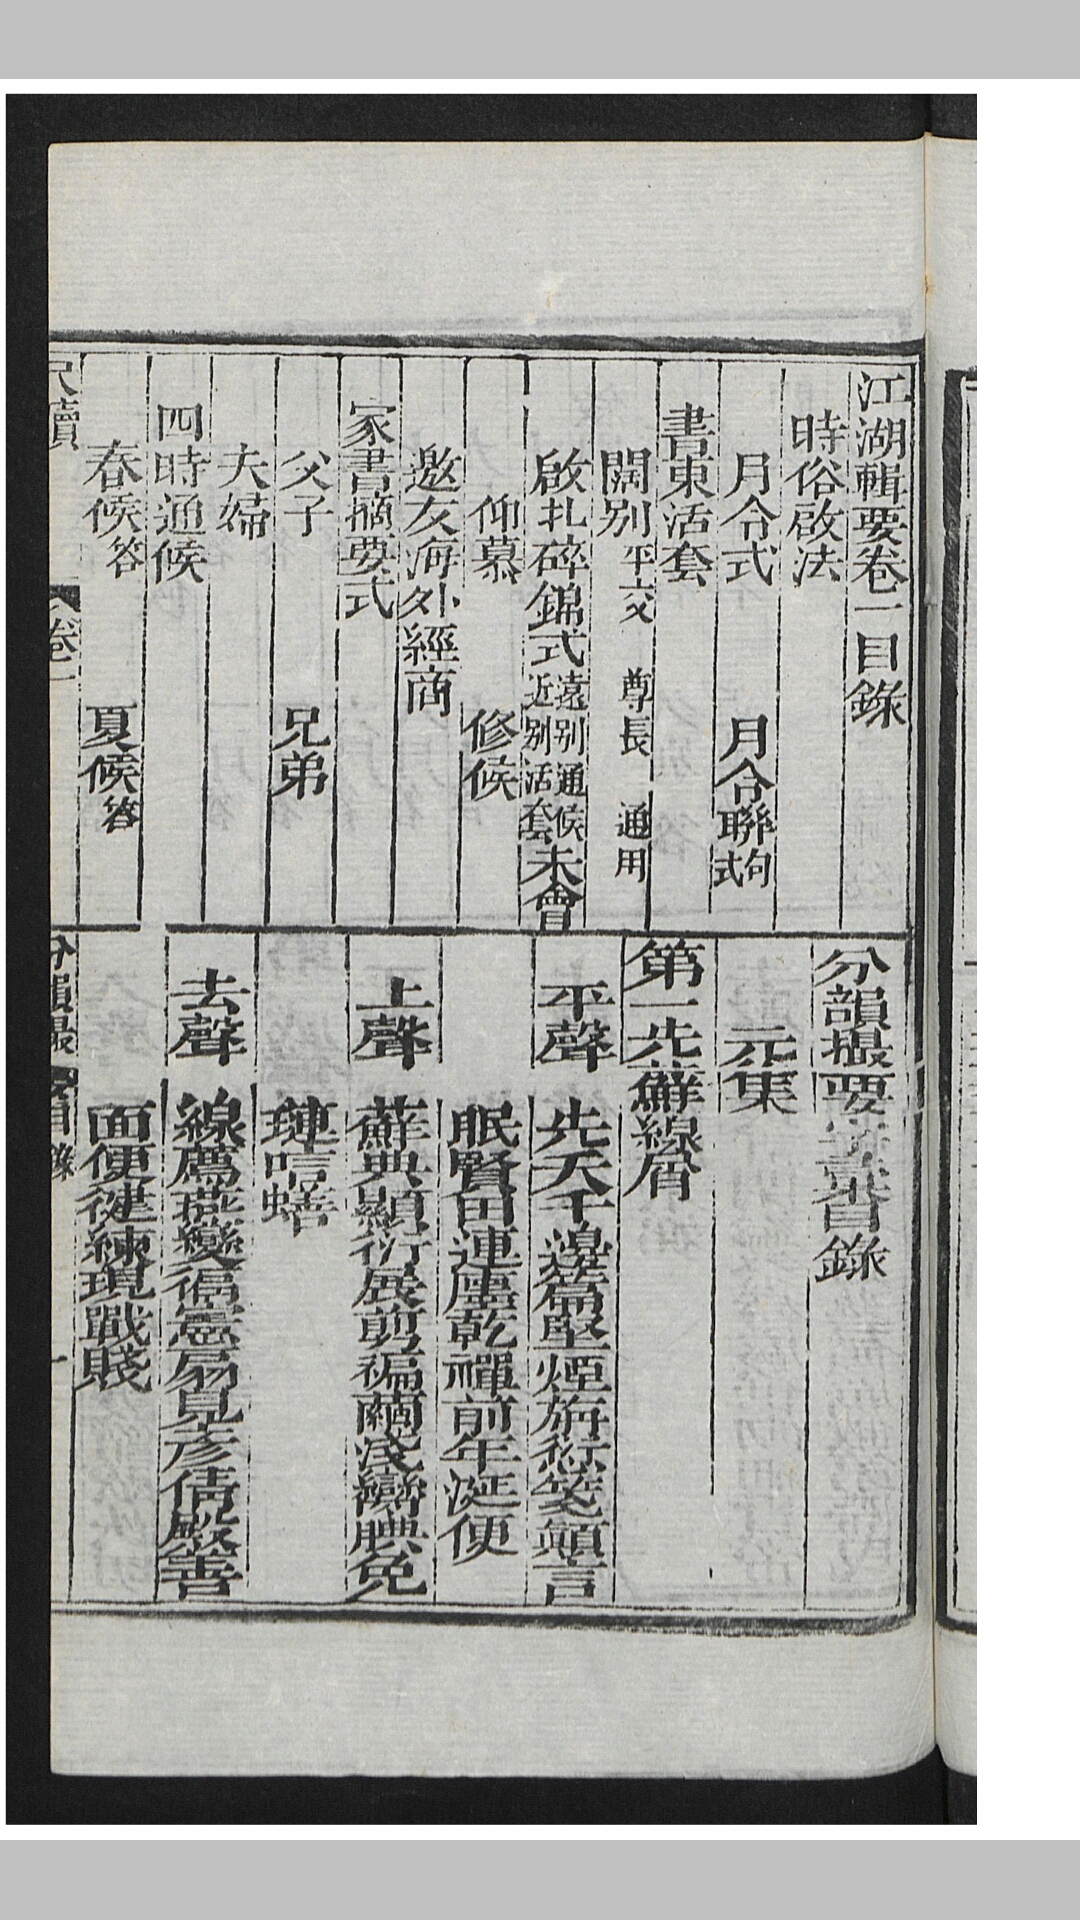 江湖輯要卷一目錄
時俗啟法
月令式 月令聯句式
書柬活套
闊別 平交 尊長 通用
啟扎碎錦式 遠別通候 近別活套 未會
仰慕 修候
邀友海外經商
家書摘要式
父子 兄弟
夫婦
四時通候
春候 答 夏候 答
尺牘 卷一
分韻撮要字彙目錄
元集
第一先蘚線屑
平聲 先天千邊篇堅煙旃愆箋顛言
眠賢田連廛乾禪前年涎便
上聲 蘚典顯衍展剪褊繭淺臠腆免
璉唁蟮
去聲 線薦燕變徧憲扇見彥倩殿善
面便健練現戰賤
分韻撮 目錄 一